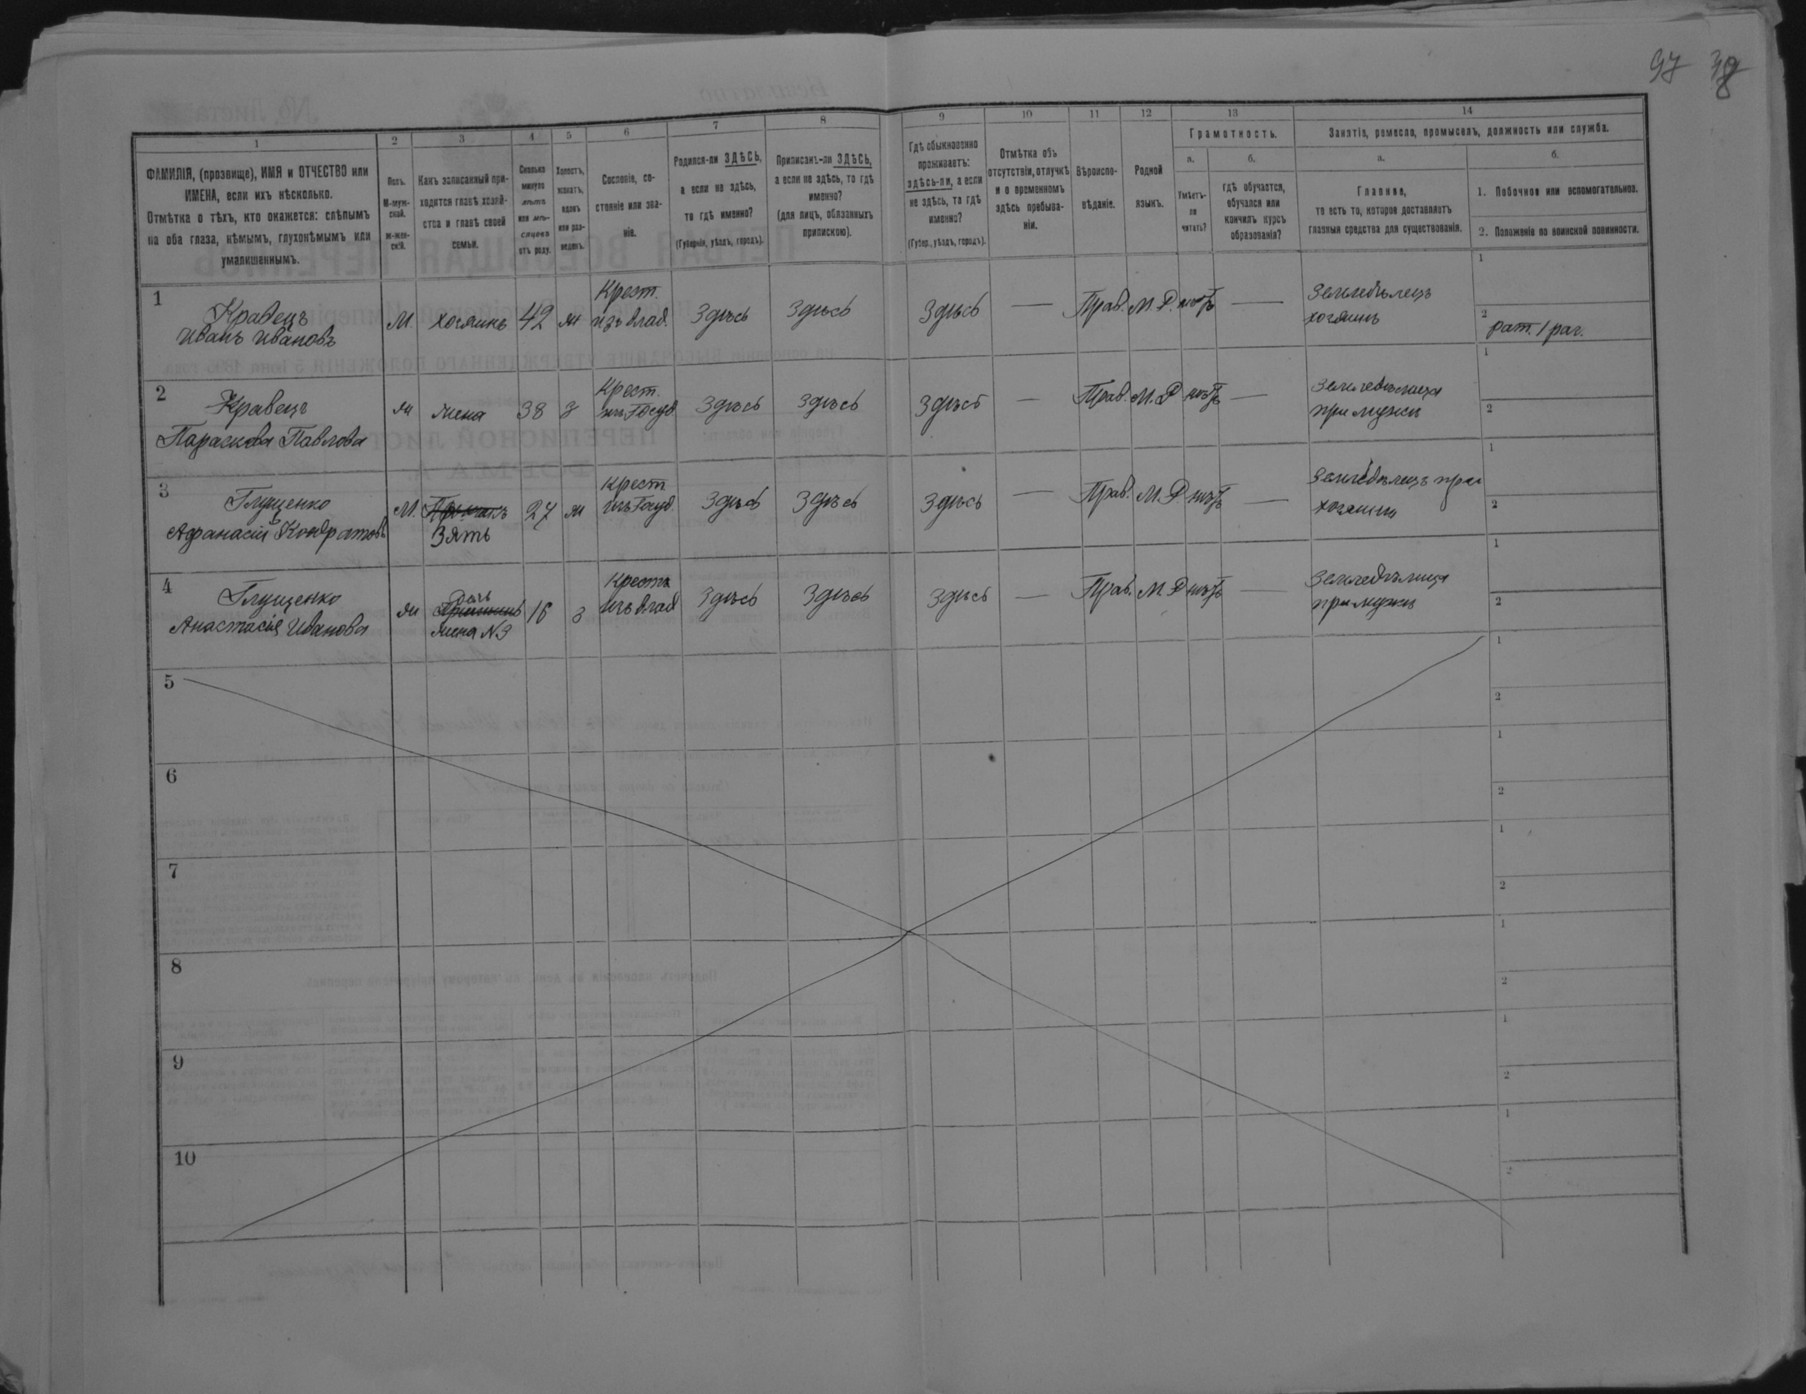 97 38
1 2 3 4 5 6 7 8 9 10 11 12 13 14
ФАМИЛІЯ, (прозвище), ИМЯ и ОТЧЕСТВО или
ИМЕНА, если ихъ нѣсколько.
Отмѣтка о тѣхъ, кто окажется: слѣпымъ
на оба глаза, нѣмымъ, глухонѣмымъ или
умалишеннымъ.
Полъ.
М-муж-
ской.
Ж-жен-
скій.
Какъ записанный при-
ходится главѣ хозяй-
ства и главѣ своей
семьи.
Сколько
минуло
лѣтъ
или мѣ-
сяцевъ
отъ роду.
Холостъ,
женатъ,
вдовъ
или раз-
веденъ.
Сословіе, со-
стояніе или зва-
ніе.
Родился-ли ЗДѢСЬ,
а если не здѣсь,
то гдѣ именно?
(Губернія, уѣздъ, городъ).
Приписанъ-ли ЗДѢСЬ,
а если не здѣсь, то гдѣ
именно?
(для лицъ, обязанныхъ
припискою).
Гдѣ обыкновенно
проживаетъ:
здѣсь-ли, а если
не здѣсь, то гдѣ
именно?
(Губер., уѣздъ, городъ).
Отмѣтка объ
отсутствіи, отлучкѣ
и о временномъ
здѣсь пребыва-
ніи.
Вѣроиспо-
вѣданіе.
Родной
языкъ.
Грамотность.
а.
Умѣетъ-
ли
читать?
б.
гдѣ обучается,
обучался или
кончилъ курсъ
образованія?
Занятіе, ремесло, промыселъ, должность или служба.
а.
Главное,
то есть то, которое доставляетъ
главныя средства для существованія.
б.
1. Побочное или вспомогательное.
2. Положеніе по воинской повинности.
1
Кравецъ
Иванъ Ивановъ
М. хозяинъ 42 ж
Крест.
изъ влад.
Здѣсь Здѣсь Здѣсь — Прав. М. Р. нѣтъ —
Земледѣлецъ
хозяинъ
1
2
рат. 1 раз.
2
Кравецъ
Параскева Павлова
ж жена 38 з
Крест.
изъ Госуд
Здѣсь Здѣсь Здѣсь — Прав. М. Р нѣтъ —
Земледѣлица
при мужѣ
1
2
3
Глущенко
Афанасій Кондратовъ
М.
Зять
27 ж
Крест
изъ Госуд
Здѣсь Здѣсь Здѣсь — Прав. М. Р нѣтъ —
Земледѣлецъ при
хозяинѣ
1
2
4
Глущенко
Анастасія Иванова
ж
дочь
жена №3
16 з
Крестъ
изъ влад
Здѣсь Здѣсь Здѣсь — Прав. М Р нѣтъ —
Земледѣлица
при мужѣ
1
2
5
1
2
6
1
2
7
1
2
8
1
2
9
1
2
10
1
2